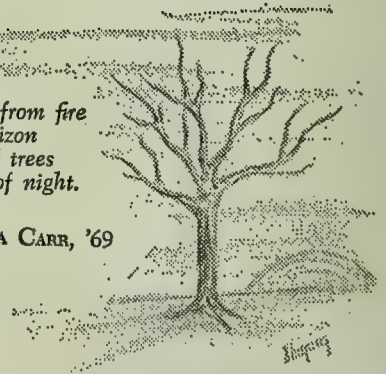 from fire
izon
trees
of night.
A CARR, '69